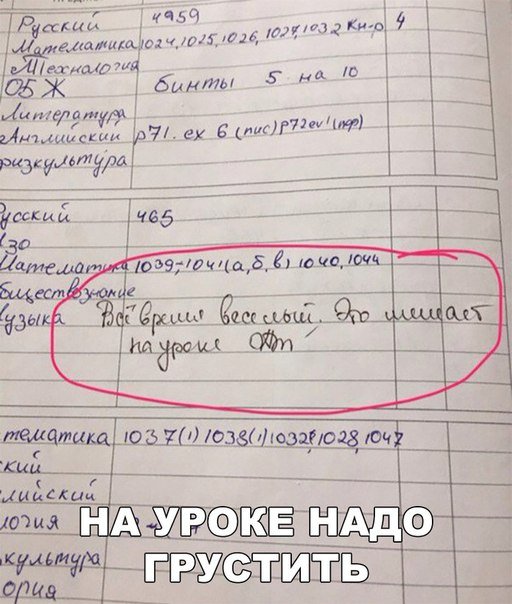 Русский 4959
Математика 1024, 1025, 1026, 1027, 1032 Кн-р 4
Технология
ОБЖ бинты 5 на 10
Литература
Английский p71. ex 6 (пис) p72 ex 1 (пер)
физкультура
усский 465
Изо
Математика 1039, 1041 (а, б, в) 1040, 1044
бществознание
узыка Всё время веселый. Это мешает
на уроке
тематика 1037(1) 1038(1) 1032, 1028, 1047
ский
лийский
логия
культура
ория
НА УРОКЕ НАДО
ГРУСТИТЬ